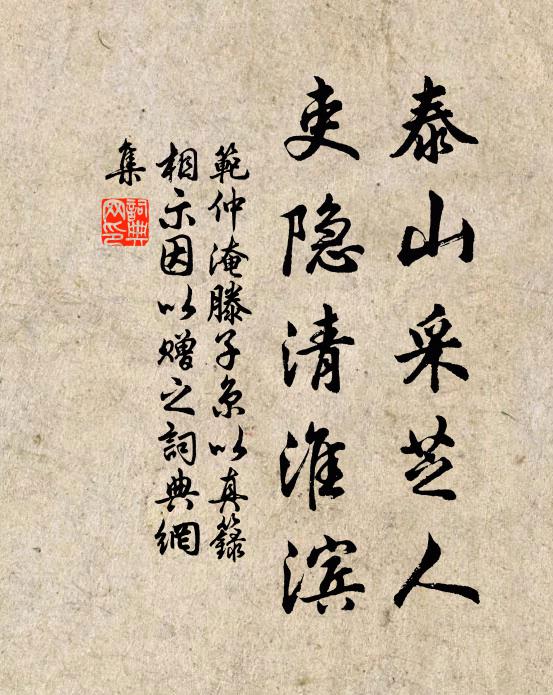 泰山采芝人
吏隐清淮滨
範仲淹滕子京以真籙
相示因以赠之詞典網
集
詞典
网印